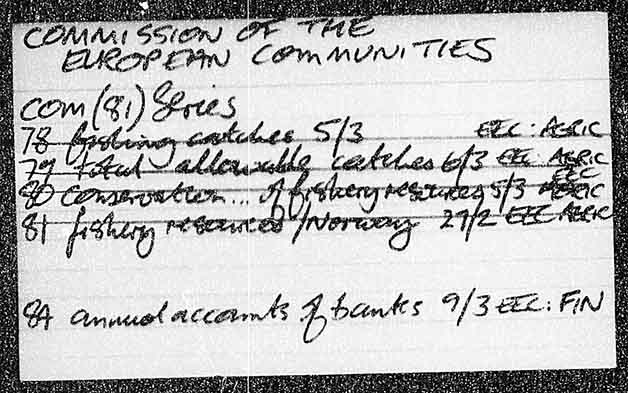 COMMISSION OF THE
EUROPEAN COMMUNITIES
COM (81) Series
78 fishing catches 5/3 EEC: AGRIC
79 total allowable catches 6/3 EEC AGRIC
80 conservation... of fishery resources 5/3 EEC AGRIC
81 fishery resources / Norway 27/2 EEC AGRIC
84 annual accounts of banks 9/3 EEC: FIN